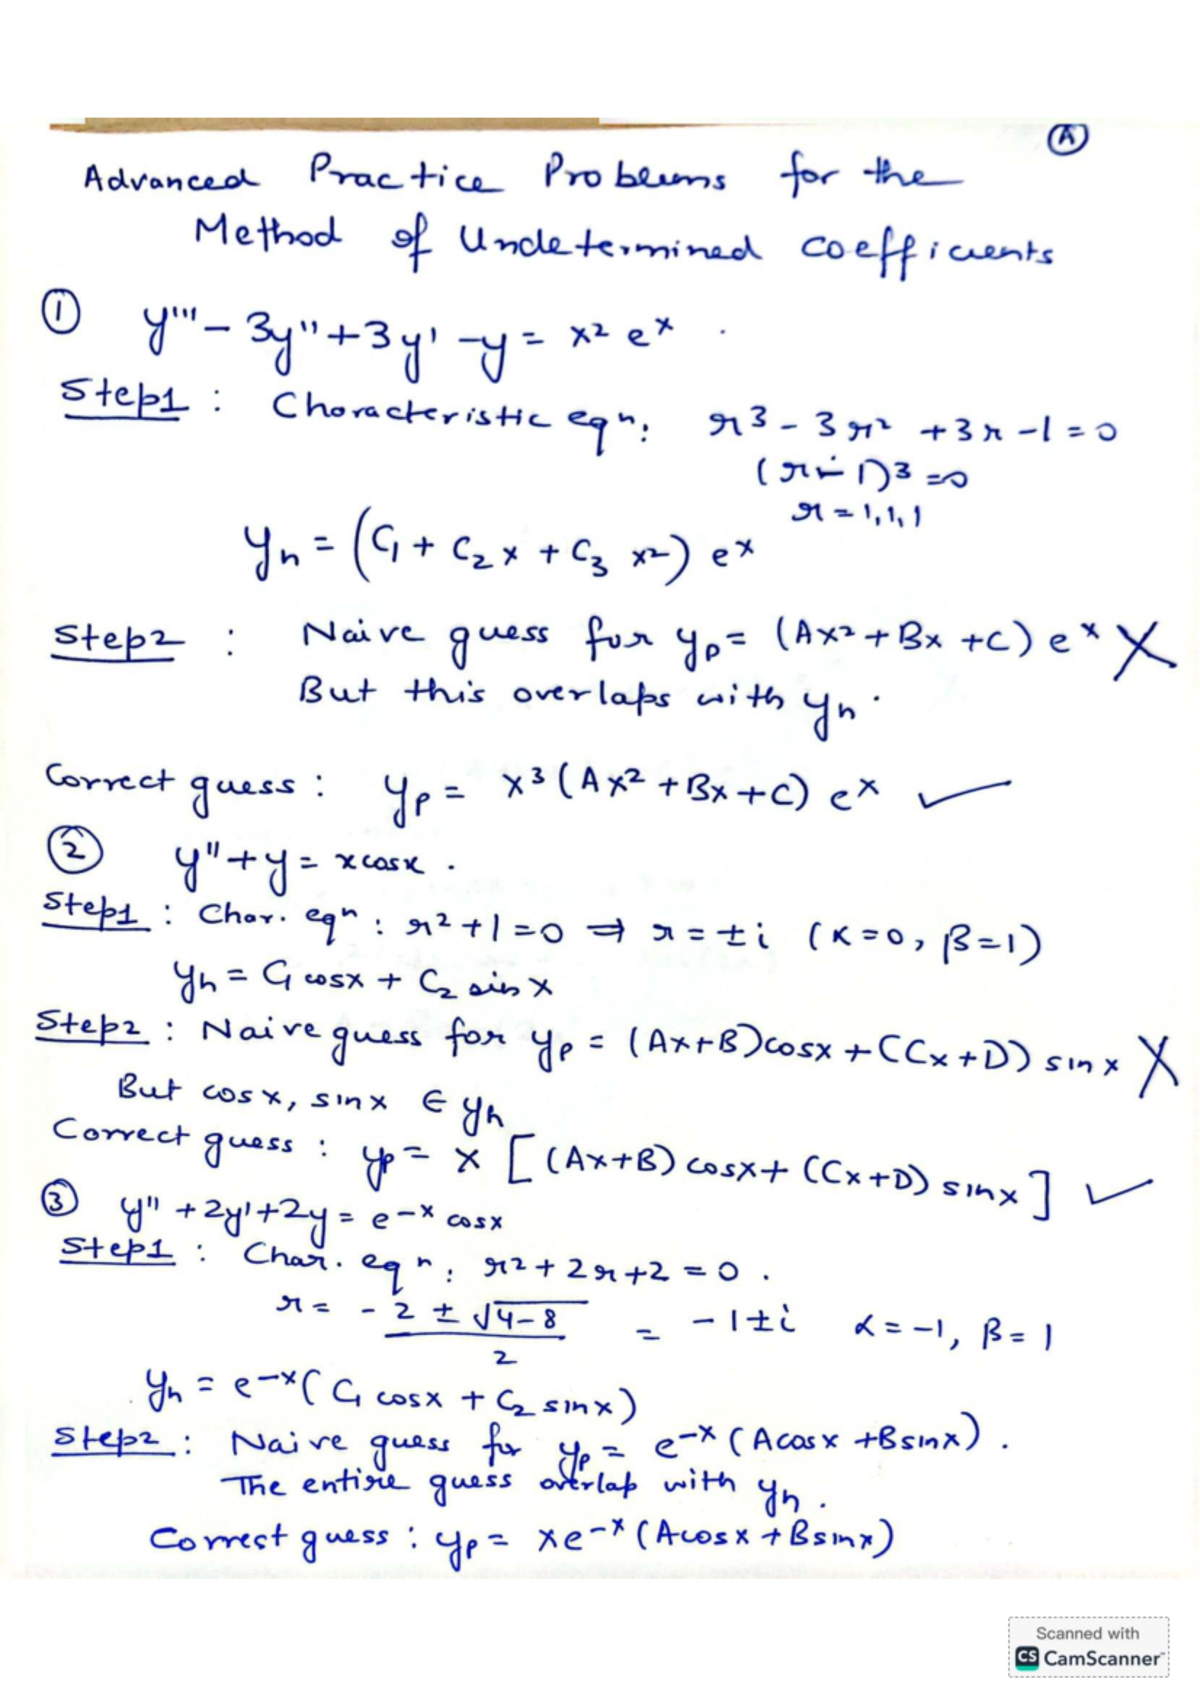 A
Advanced Practice Problems for the
Method of Undetermined coefficients
① y''' - 3y'' + 3y' - y = x² eˣ .
Step1 : Characteristic eqⁿ: r³ - 3r² + 3r - 1 = 0
(r - 1)³ = 0
r = 1, 1, 1
yₕ = (C₁ + C₂ x + C₃ x²) eˣ
Step2 : Naive guess for yₚ = (Ax² + Bx + C) eˣ X
But this overlaps with yₕ.
Correct guess : yₚ = x³ (Ax² + Bx + C) eˣ ✓
② y'' + y = x cosx .
Step1 : Char. eqⁿ : r² + 1 = 0 ⇒ r = ± i (α = 0, β = 1)
yₕ = C₁ cosx + C₂ sin x
Step2 : Naive guess for yₚ = (Ax+B) cosx + (Cx+D) sin x X
But cos x, sin x ∈ yₕ
Correct guess : yₚ = x [(Ax+B) cosx + (Cx+D) sinx] ✓
③ y'' + 2y' + 2y = e⁻ˣ cosx
Step1 : Char. eqⁿ: r² + 2r + 2 = 0 .
r = - 2 ± √4-8 / 2 = - 1 ± i α = -1, β = 1
yₕ = e⁻ˣ ( C₁ cosx + C₂ sinx )
Step2 : Naive guess for yₚ = e⁻ˣ ( A cosx + B sinx ) .
The entire guess overlap with yₕ .
Correct guess : yₚ = x e⁻ˣ ( A cosx + B sinx )
Scanned with
CS CamScanner